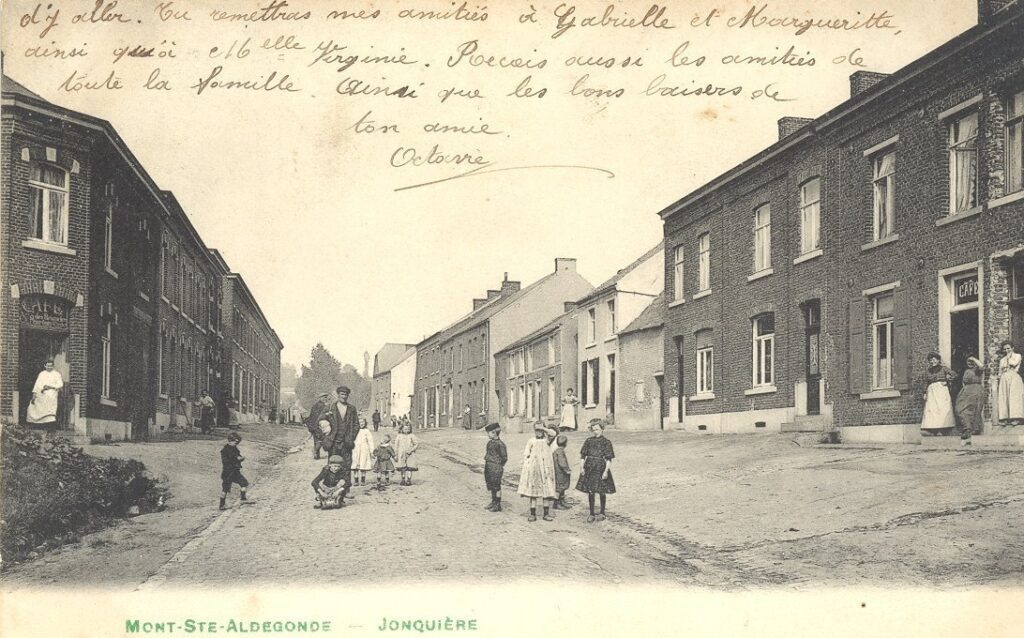 d'y aller. Tu remettras mes amitiés à Gabrielle et Margueritte,
ainsi qu'à Melle Virginie. Recois aussi les amitiés de
toute la famille. Ainsi que les bons baisers de
ton amie.
Octavie
CAFÉ
CAFÉ
MONT-STE-ALDEGONDE — JONQUIÈRE